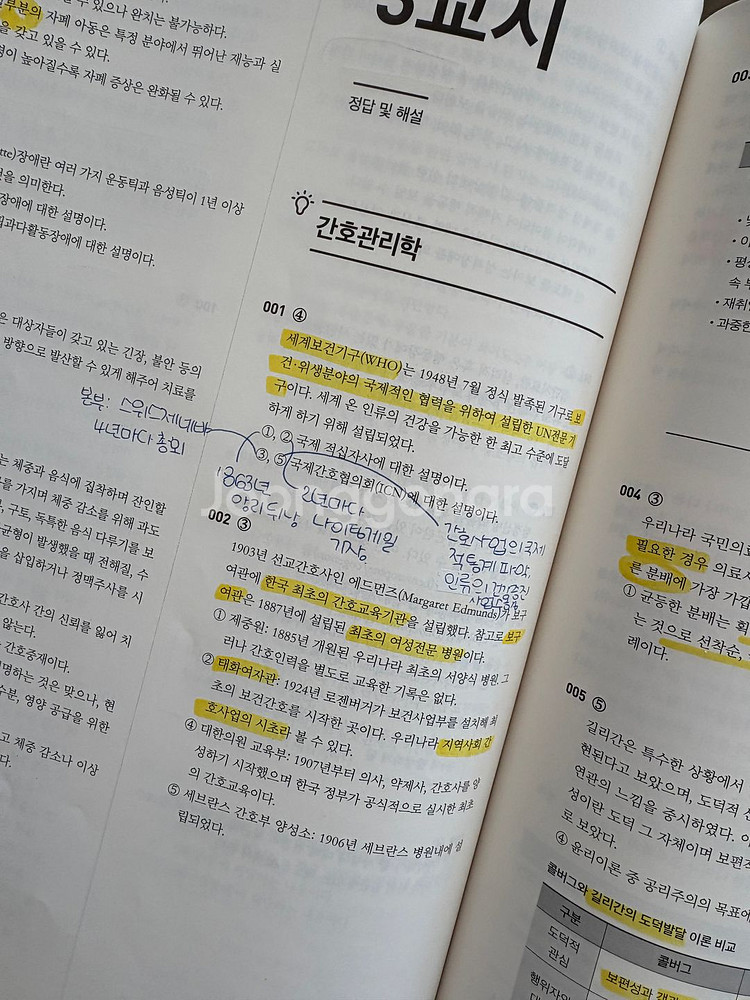 있으나 완치는 불가능하다.
부분의 자폐 아동은 특정 분야에서 뛰어난 재능과 실
을 갖고 있을 수 있다.
이 높아질수록 자폐 증상은 완화될 수 있다.
tte)장애란 여러 가지 운동틱과 음성틱이 1년 이상
것을 의미한다.
장애에 대한 설명이다.
과다활동장애에 대한 설명이다.
은 대상자들이 갖고 있는 긴장, 불안 등의
방향으로 발산할 수 있게 해주어 치료를
는 체중과 음식에 집착하며 잔인할
를 가지며 체중 감소를 위해 과도
, 구토, 독특한 음식 다루기를 보
균형이 발생했을 때 전해질, 수
을 삽입하거나 정맥주사를 시
간호사 간의 신뢰를 잃어 치
않는다.
간호중재이다.
명하는 것은 맞으나, 현
수분, 영양 공급을 위한
고 체중 감소나 이상
다.
3교시
정답 및 해설
간호관리학
001 ④
세계보건기구(WHO)는 1948년 7월 정식 발족된 기구로 보
건·위생분야의 국제적인 협력을 위하여 설립한 UN전문 기
구이다. 세계 온 인류의 건강을 가능한 한 최고 수준에 도달
하게 하기 위해 설립되었다.
①, ② 국제 적십자사에 대한 설명이다.
③, ⑤ 국제간호협의회(ICN)에 대한 설명이다.
본부: 스위스제네바
4년마다 총회
1863년
앙리뒤낭
2년마다
나이팅게일
기장
간호사업의 국제
적 통계 파악,
인류의 건강증진
002 ③
1903년 선교간호사인 에드먼즈(Margaret Edmunds)가 보구
여관에 한국 최초의 간호교육기관을 설립했다. 참고로 보구
여관은 1887년에 설립된 최초의 여성전문 병원이다.
① 제중원: 1885년 개원된 우리나라 최초의 서양식 병원. 그
러나 간호인력을 별도로 교육한 기록은 없다.
② 태화여자관: 1924년 로젠버거가 보건사업부를 설치해 최
초의 보건간호를 시작한 곳이다. 우리나라 지역사회 간
호사업의 시초라 볼 수 있다.
④ 대한의원 교육부: 1907년부터 의사, 약제사, 간호사를 양
성하기 시작했으며 한국 정부가 공식적으로 실시한 최초
의 간호교육이다.
⑤ 세브란스 간호부 양성소: 1906년 세브란스 병원내에 설
립되었다.
Joonggonara
003
• 평
속
• 재취
• 과중한
004 ③
우리나라 국민의료
필요한 경우 의료
른 분배에 가장 가깝
① 균등한 분배는 획
는 것으로 선착순,
레이다.
005 ⑤
길리간은 특수한 상황에서
현된다고 보았으며, 도덕적
연관의 느낌을 중시하였다.
성이란 도덕 그 자체이며 보편적
로 보았다.
④ 윤리이론 중 공리주의의 목표에
콜버그와 길리간의 도덕발달 이론 비교
구분
콜버그
도덕적
관심
보편성과
행위자와